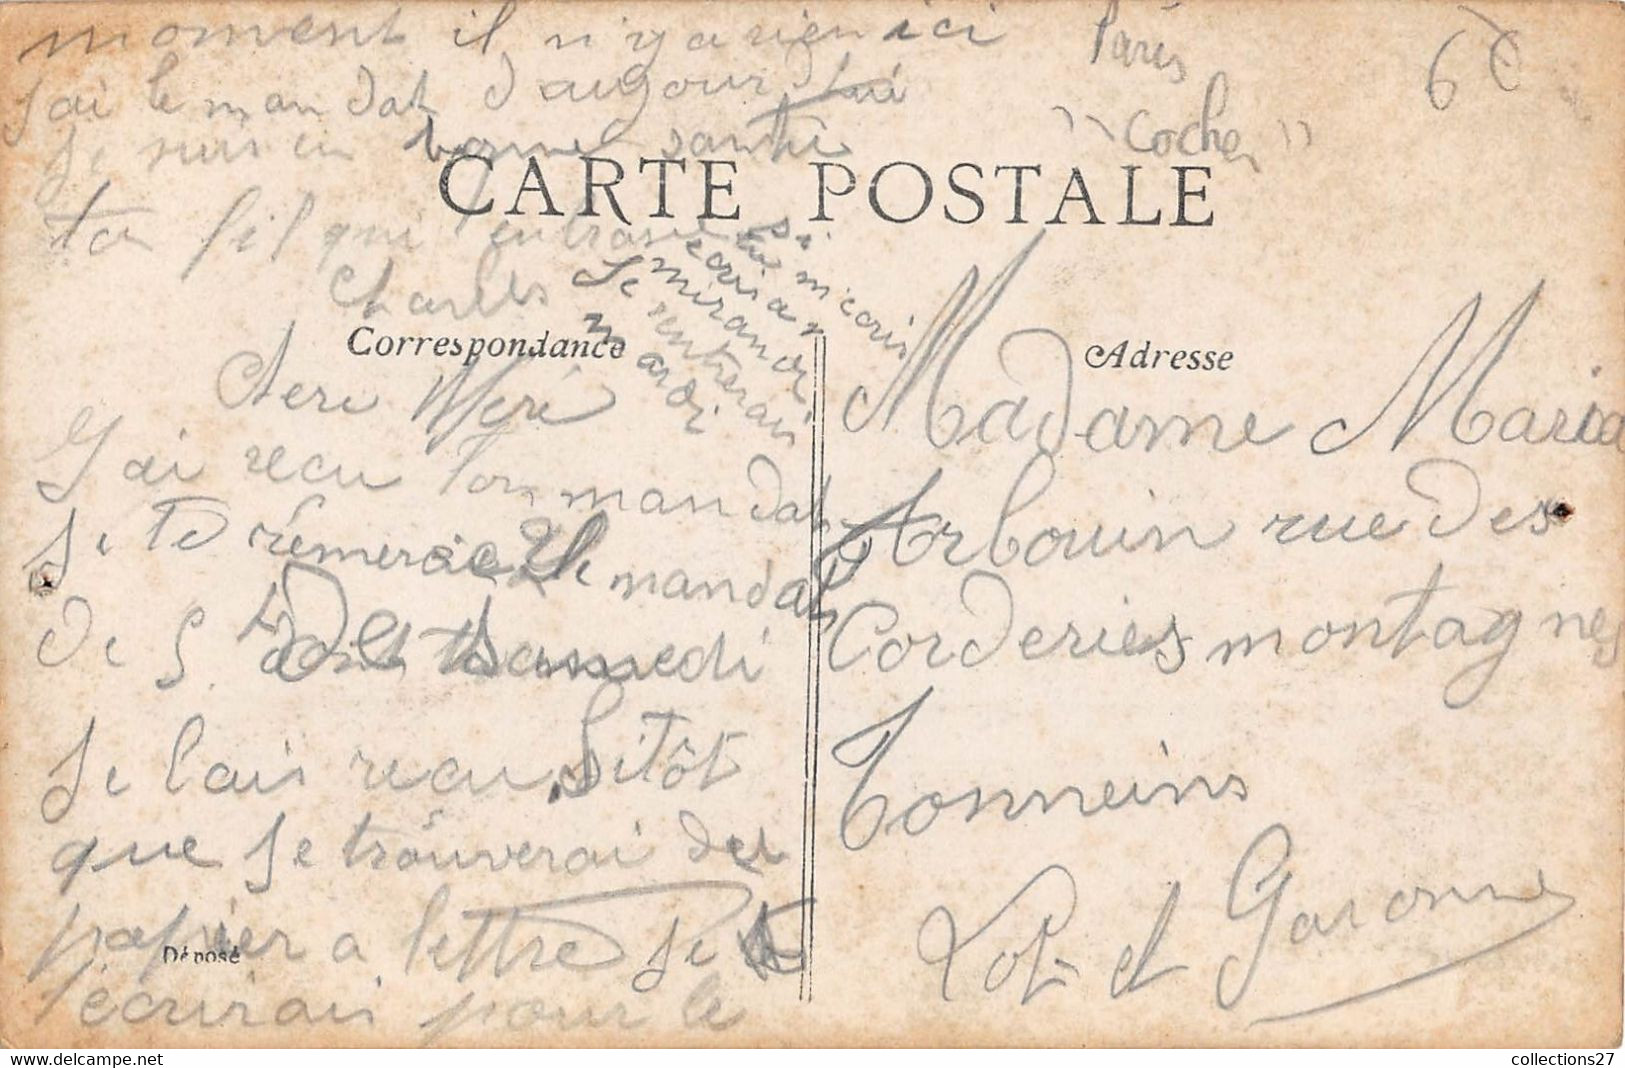 moment il n'y a rien ici
J'ai le mandat d'aujourd'hui
Je suis en bonne santé
ton fil qui t'enbrasse
Charles
si tu m'écris
écris a
mirande
Je rentrerais
mardi
Paris
"Cocher"
6€
CARTE POSTALE
Correspondance
Adresse
Chere Meré
J'ai recu ton mandat
Je te remercie le mandat
de 5 samedi
Je lais recu. Sitôt
que je trouverai du
papier a lettre je t
écrirais pour le
Déposé
Madame Maria
Arbouin rue des
Corderies montagnes
Tonneins
Lot et Garonne
collections27